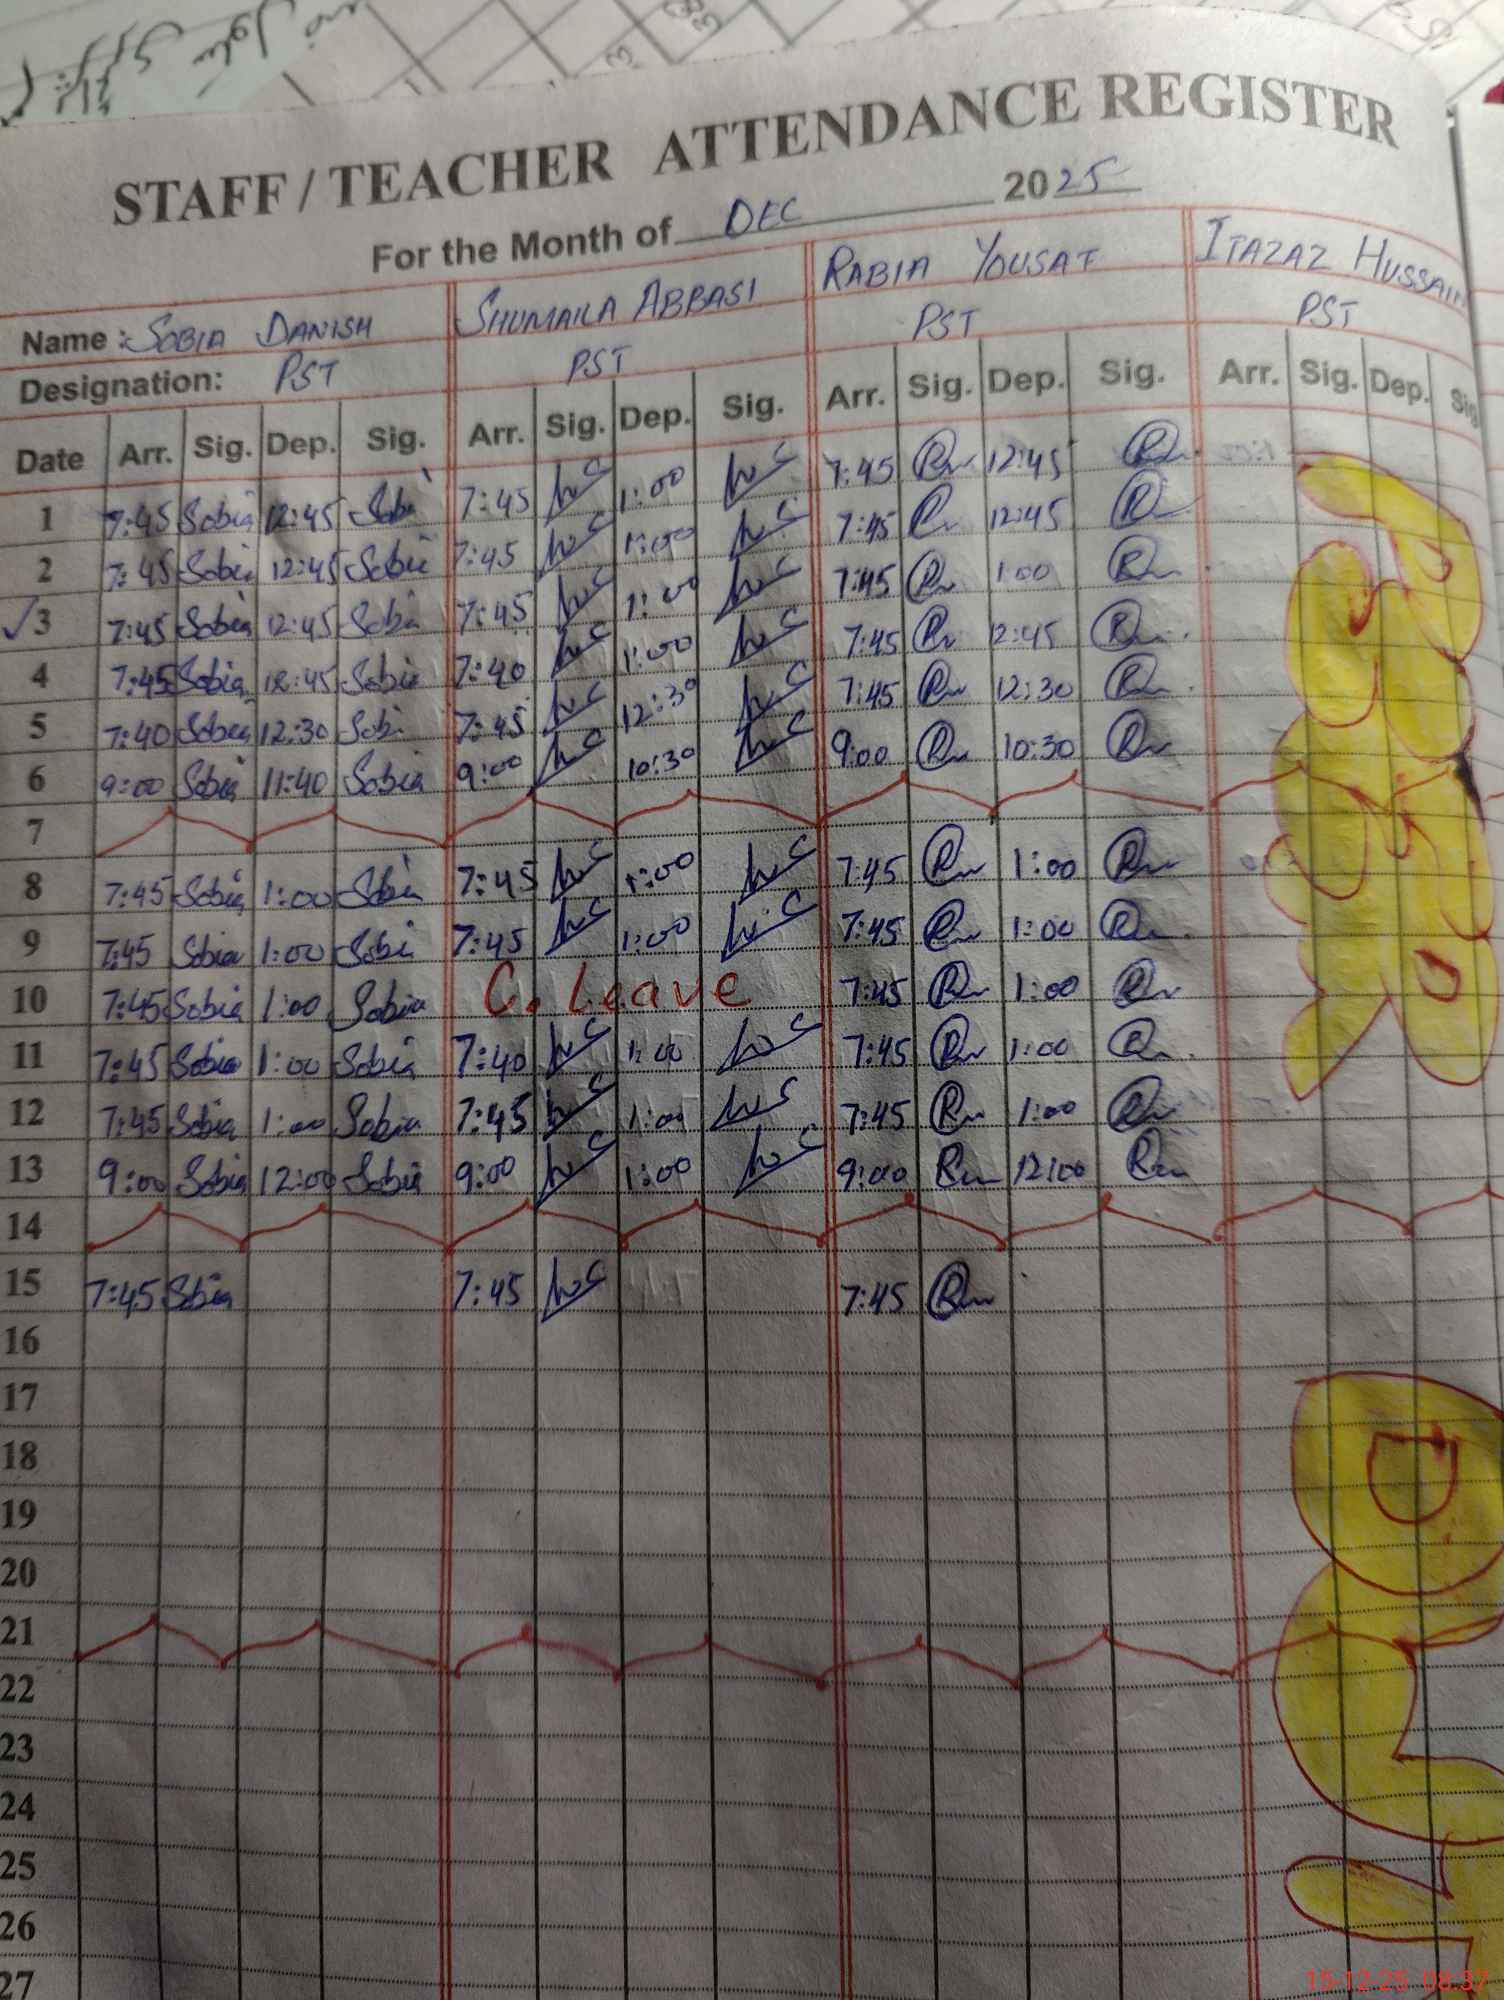 STAFF / TEACHER ATTENDANCE REGISTER
For the Month of DEC 2025
Name : SOBIA DANISH SHUMAILA ABBASI RABIA YOUSAF ITAZAZ HUSSAIN
Designation: PST PST PST PST
Date Arr. Sig. Dep. Sig. Arr. Sig. Dep. Sig. Arr. Sig. Dep. Sig. Arr. Sig. Dep. Sig
1 7:45 Sobia 12:45 Sobi 7:45 1:00 7:45 12:45
2 7:45 Sobia 12:45 Sobia 7:45 1:00 7:45 12:45
3 7:45 Sobia 12:45 Sobia 7:45 1:00 7:45 1:00
4 7:45 Sobia 12:45 Sobia 7:40 1:00 7:45 12:45
5 7:40 Sobia 12:30 Sobi 7:45 12:30 7:45 12:30
6 9:00 Sobia 11:40 Sobia 9:00 10:30 9:00 10:30
7
8 7:45 Sobia 1:00 Sobia 7:45 1:00 7:45 1:00
9 7:45 Sobia 1:00 Sobi 7:45 1:00 7:45 1:00
10 7:45 Sobia 1:00 Sobia C. Leave 7:45 1:00
11 7:45 Sobia 1:00 Sobia 7:40 1:00 7:45 1:00
12 7:45 Sobia 1:00 Sobia 7:45 1:00 7:45 1:00
13 9:00 Sobia 12:00 Sobia 9:00 1:00 9:00 12:00
14
15 7:45 Sobia 7:45 7:45
16
17
18
19
20
21
22
23
24
25
26
27
15-12-25 08:37